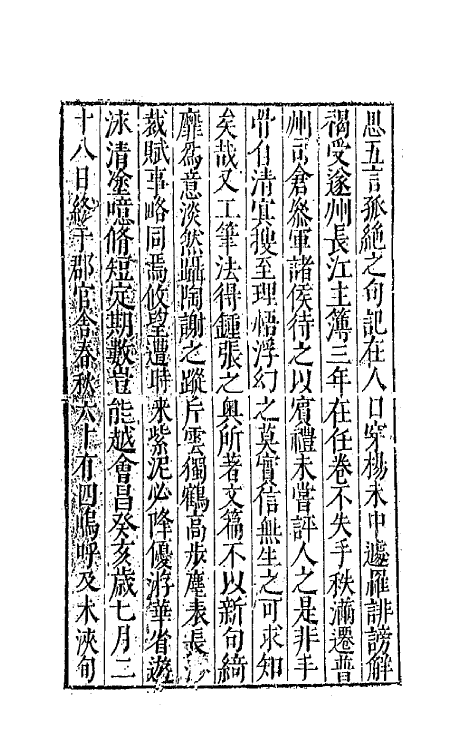 思五言孤絶之句記在人口穿楊未中遽罹誹謗解
褐受遂州長江主簿三年在任卷不失手秩滿遷普
州司倉叅軍諸侯待之以賓禮未嘗評人之是非手
自清㝠搜至理悟浮幻之莫實信無生之可求知
矣哉又工筆法得鍾張之奥所著文篇不以新句綺
靡爲意淡然躡陶謝之蹤片雲獨鶴高步塵表長沙
裁賦事略同焉攸望遭時来紫泥必降優游華省遊
泳清塗噫脩短定期數豈能越會昌癸亥歳七月二
十八日終于郡官舍春秋六十有四嗚呼及未浹旬